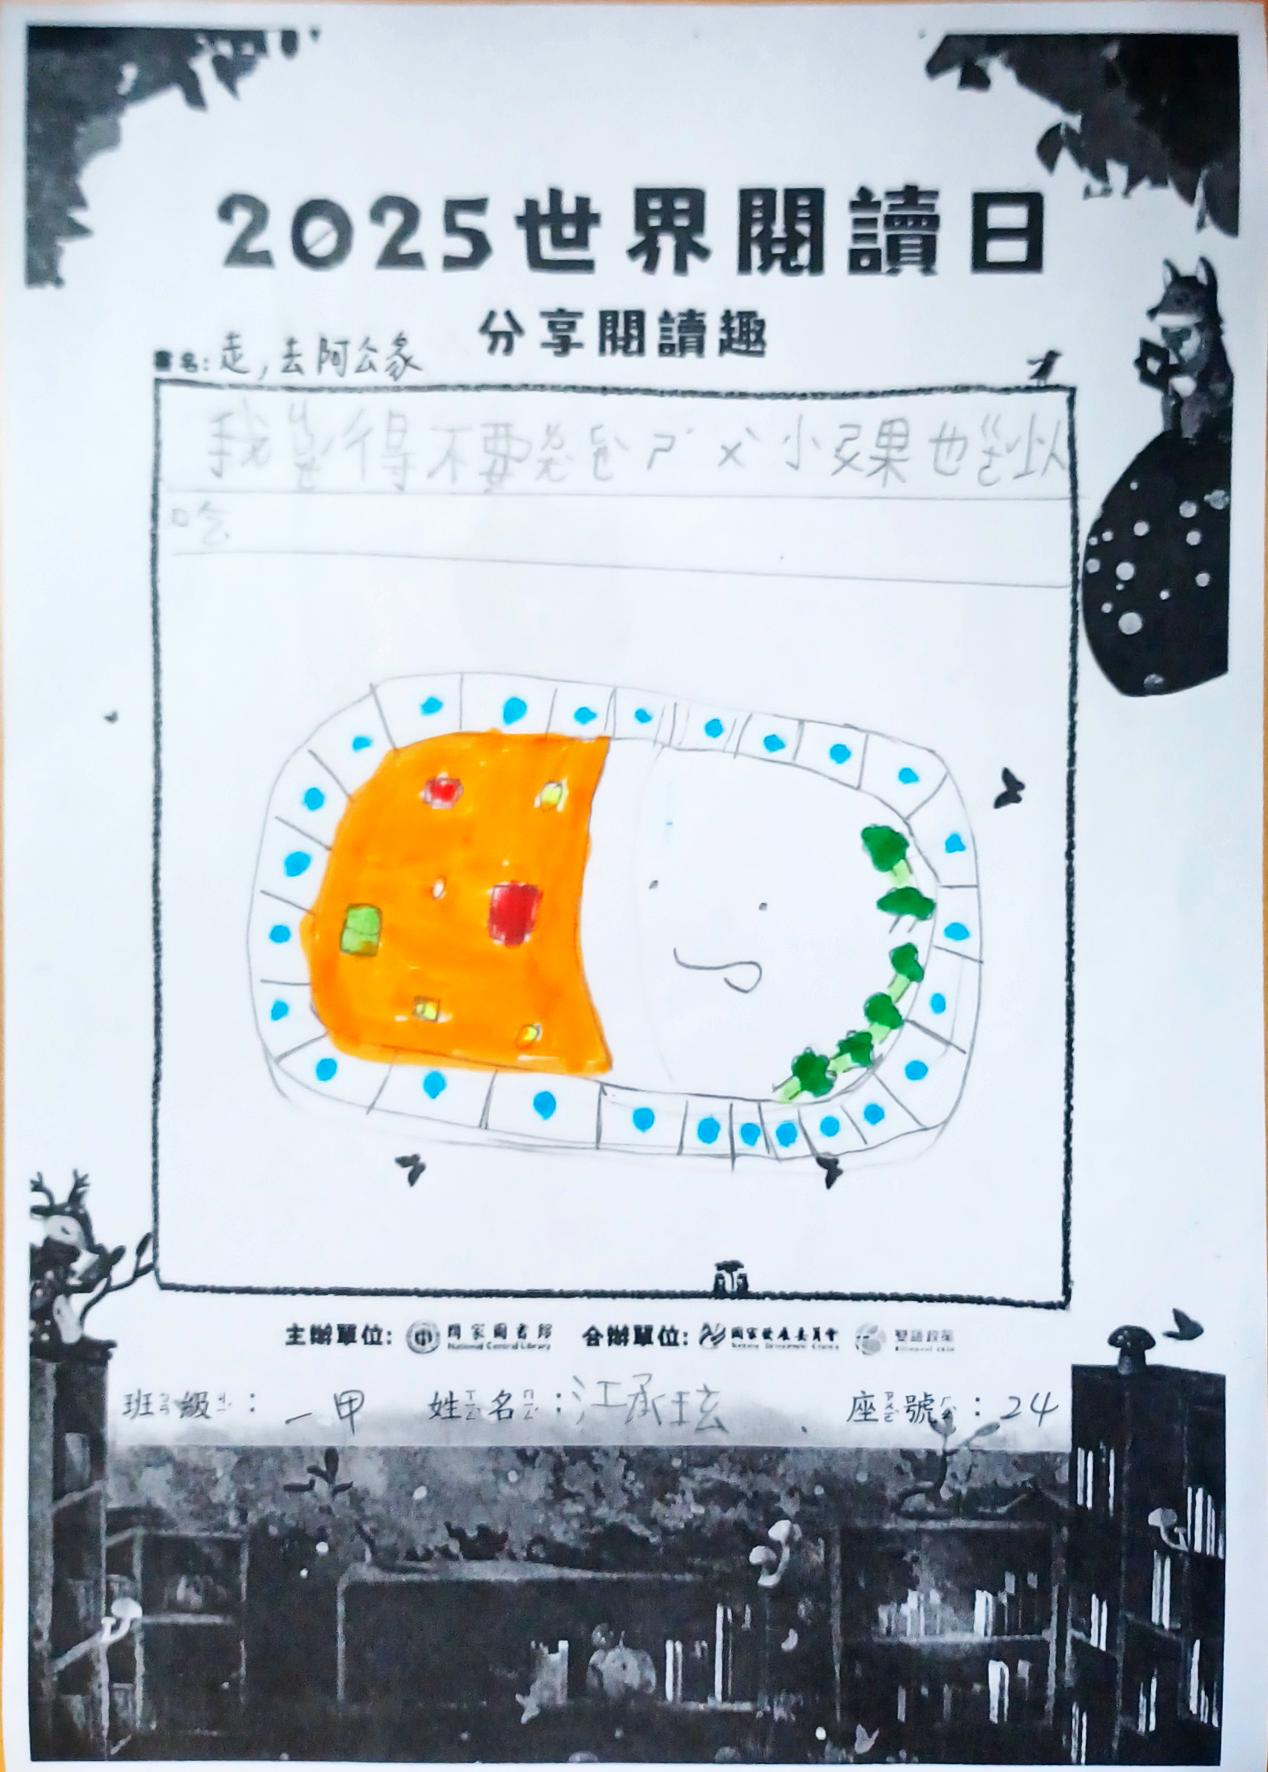 2025世界閱讀日
分享閱讀趣
書名：走，去阿公家
我ㄐㄩㄝˊ得不要ㄤㄜˋㄕˊㄨˋ小
吃
主辦單位： 國家圖書館 National Central Library 合辦單位： 國家發展委員會 National Development Council 雙語政策 Bilingual
班級： 一甲 姓名：江承玹 座號：24